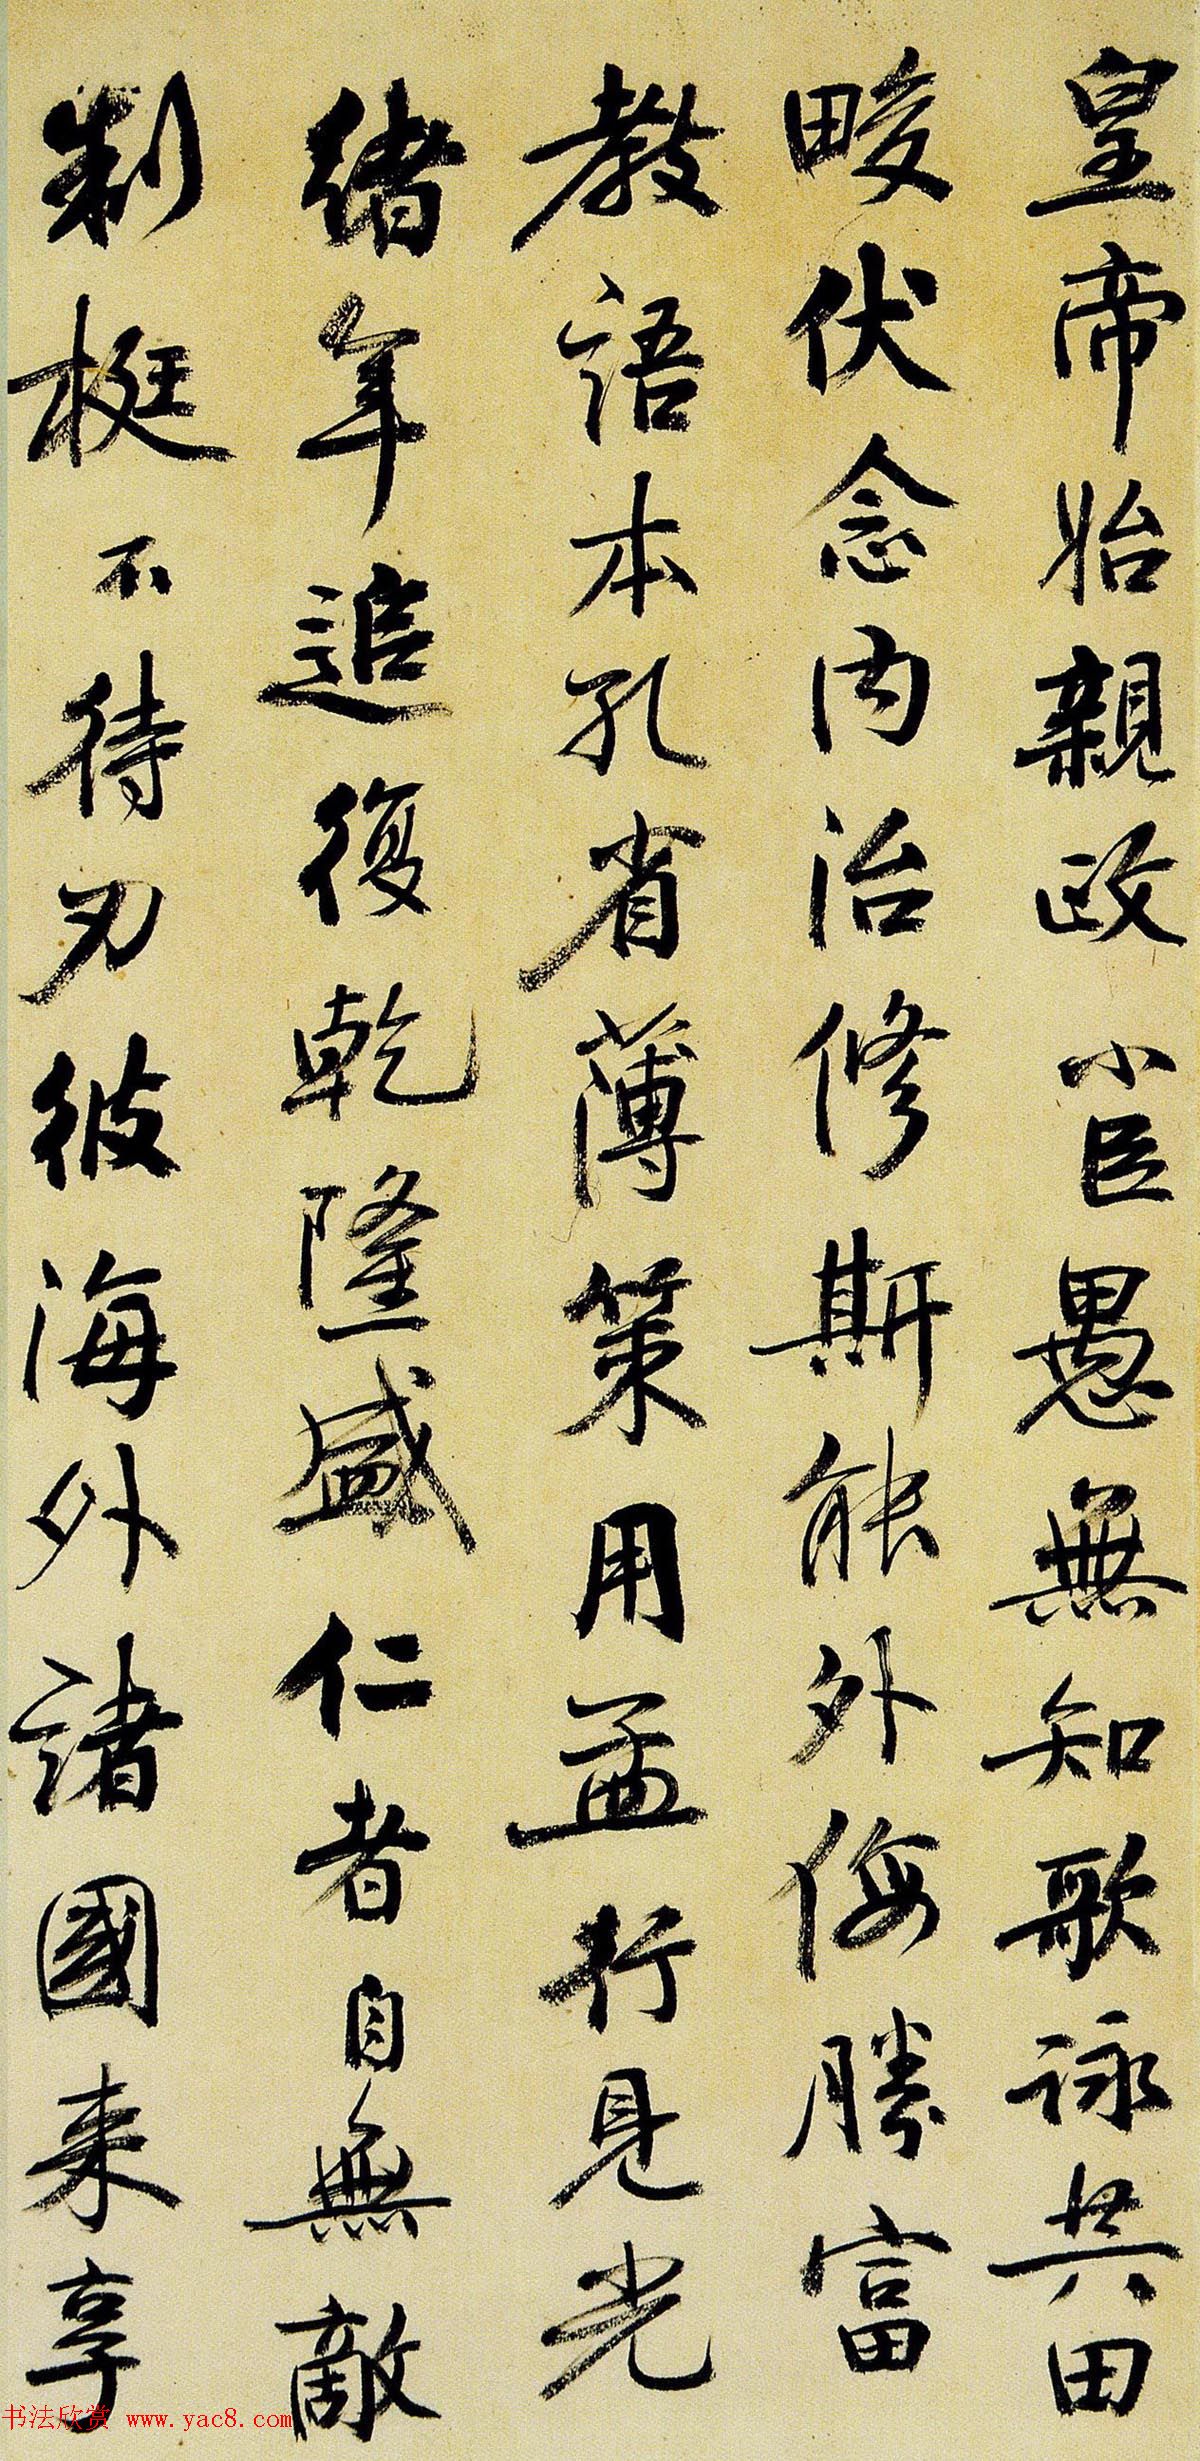 皇帝始親政小臣愚無知歌詠共田
畯伏念內治修斯能外侮勝富
教語本孔省薄策用孟行見光
緒年追復乾隆盛仁者自無敵
制梃不待刃彼海外諸國来享
书法欣赏 www.yac8.com